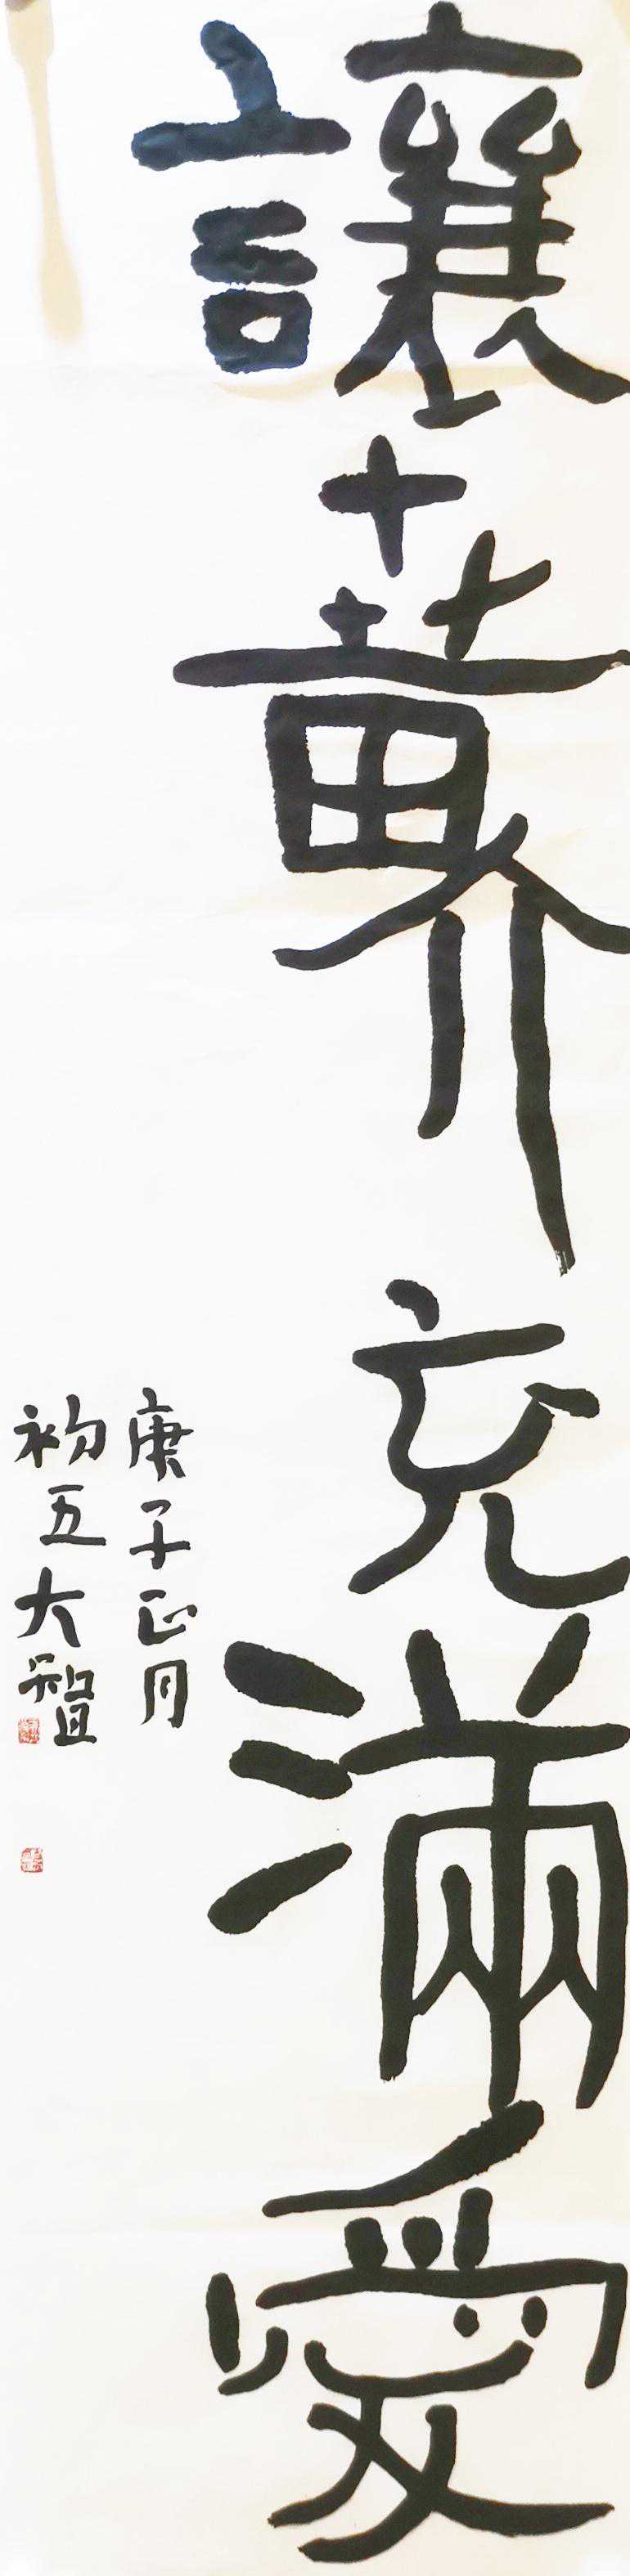 讓世界充滿愛
庚子正月
初五大智